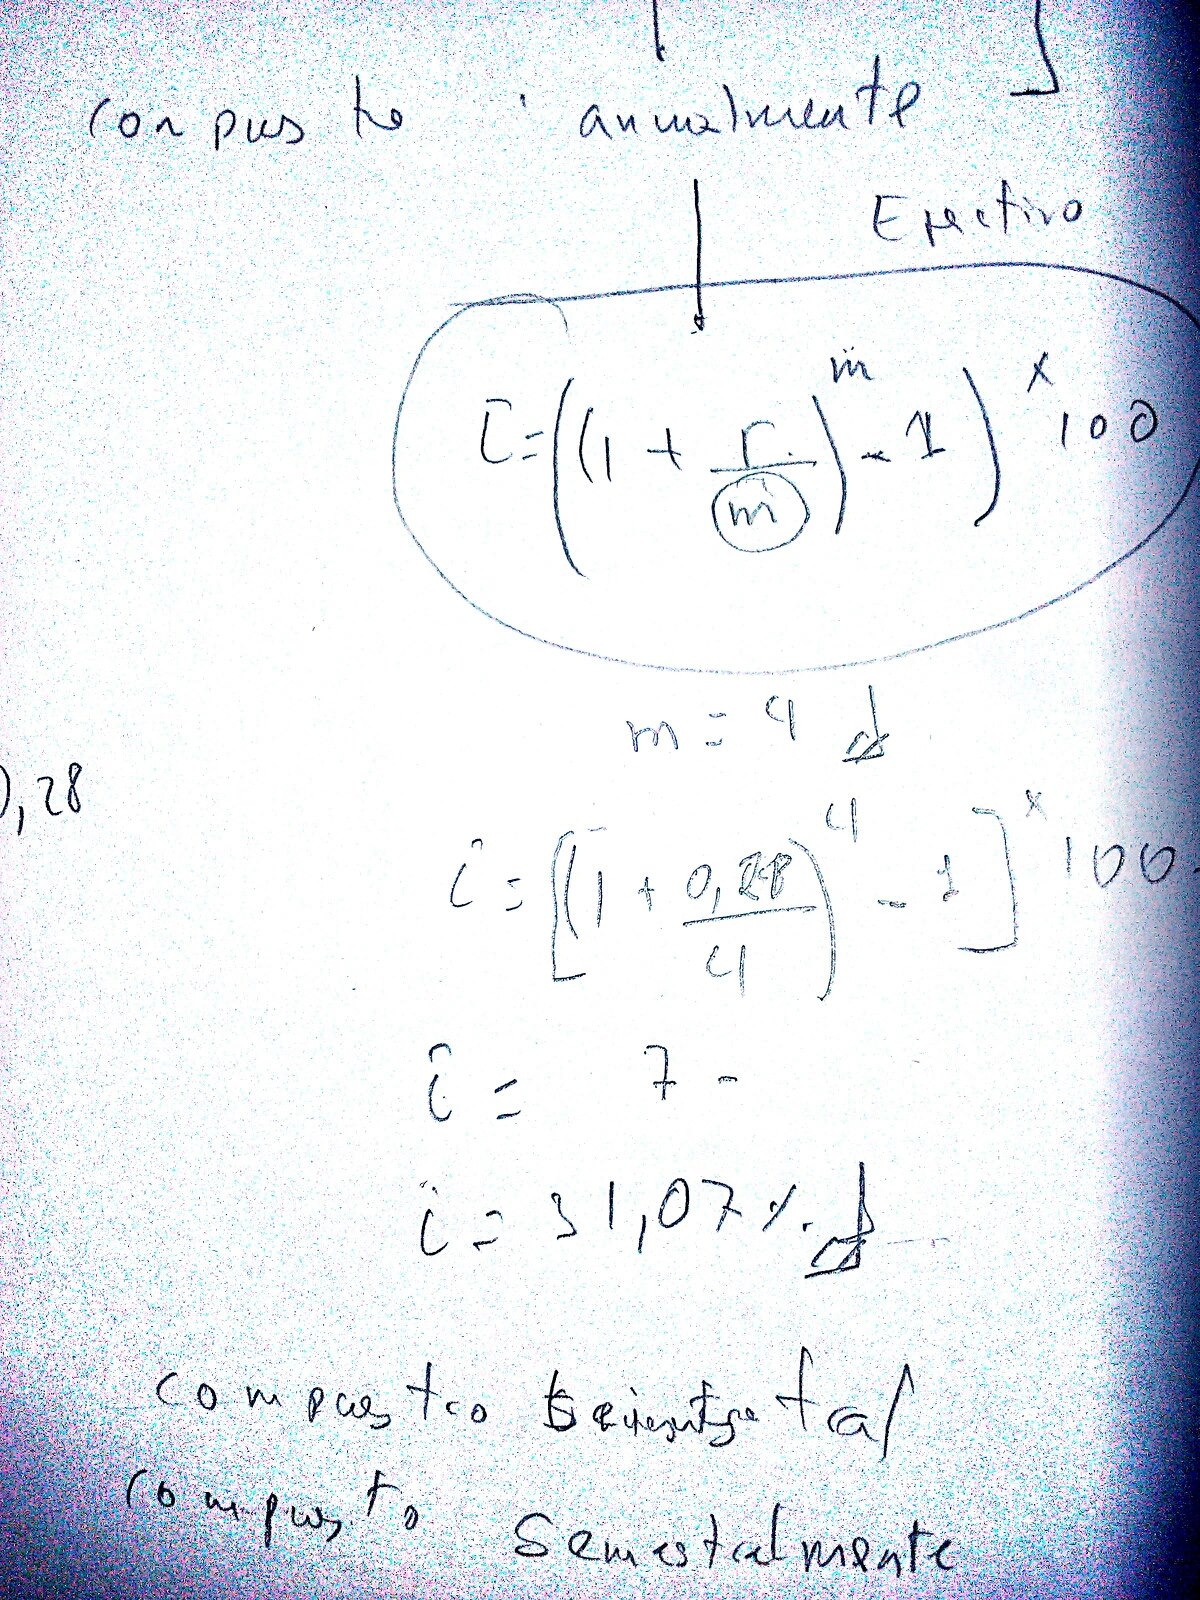 compuesto anualmente
Efectivo
i = ((1 + r/m)^m - 1) x 100
m = 4
0,28
i = [(1 + 0,28/4)^4 - 1] x 100
i = 7 -
i = 31,07 %.
compuesto
compuesto semestralmente